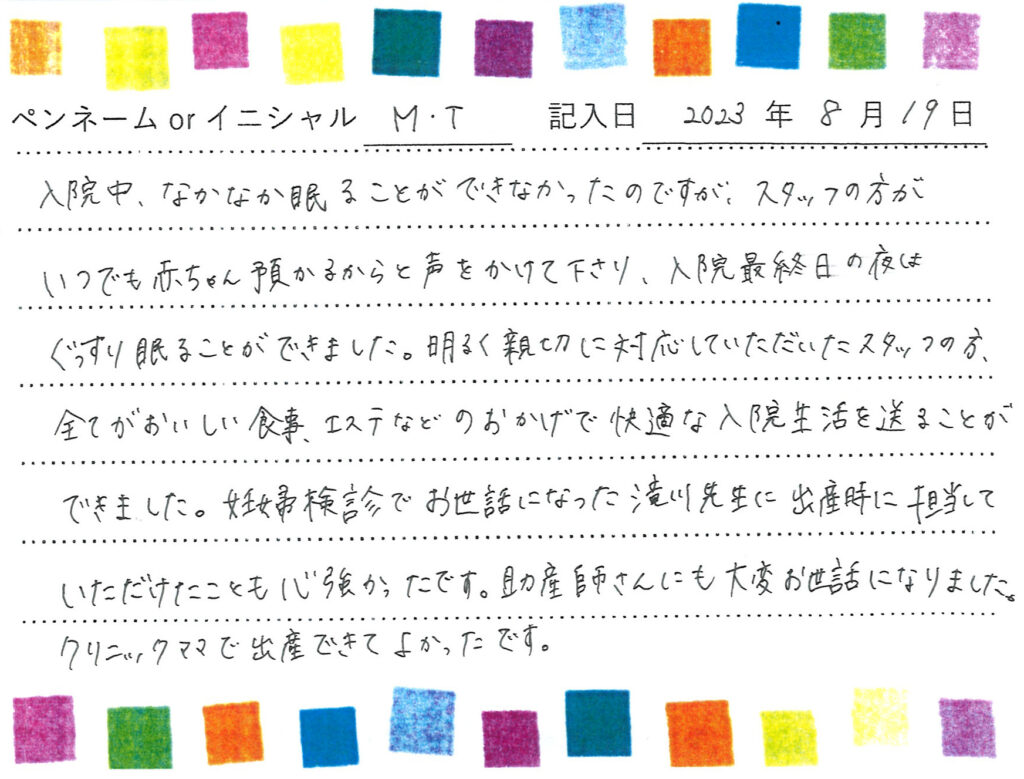 ペンネーム or イニシャル M・T 記入日 2023 年 8 月 19 日
入院中、なかなか眠ることができなかったのですが、スタッフの方が
いつでも赤ちゃん預かるからと声をかけて下さり、入院最終日の夜は
ぐっすり眠ることができました。明るく親切に対応していただいたスタッフの方、
全てがおいしい食事、エステなどのおかげで快適な入院生活を送ることが
できました。妊婦検診でお世話になった滝川先生に出産時に担当して
いただけたことも心強かったです。助産師さんにも大変お世話になりました。
クリニックママで出産できてよかったです。